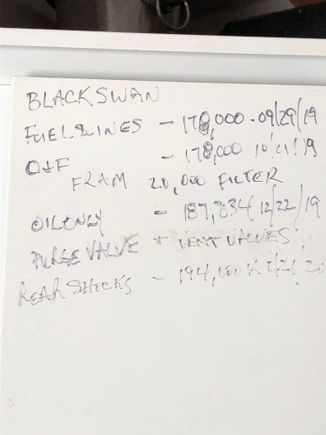 BLACK SWAN
FUEL LINES - 178,000 - 09/29/19
O+F - 178,000 10/01/19
FRAM 20,000 FILTER
OIL ONLY - 187,834 12/22/19
PURGE VALVE + VENT VALVES
REAR SHOCKS - 194,